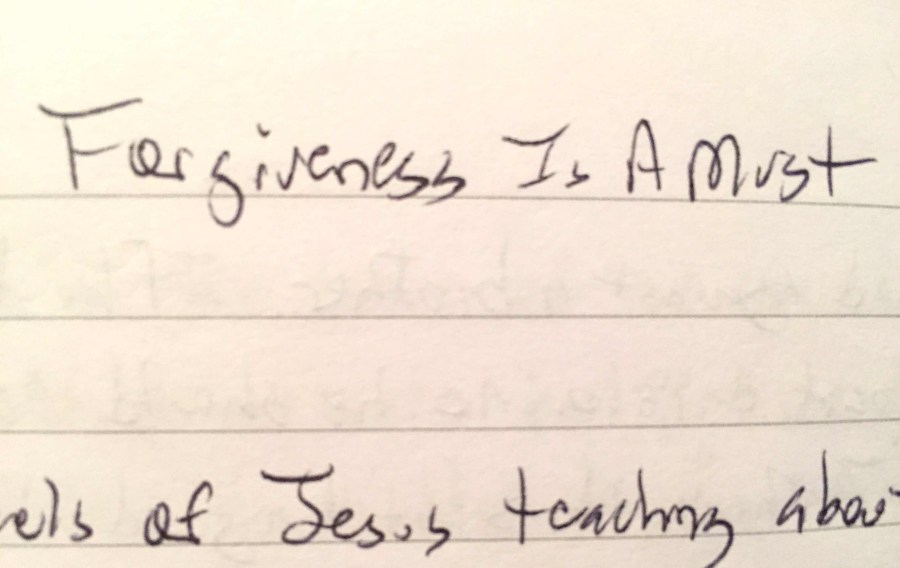 Forgiveness Is A Must
els of Jesus teaching abou